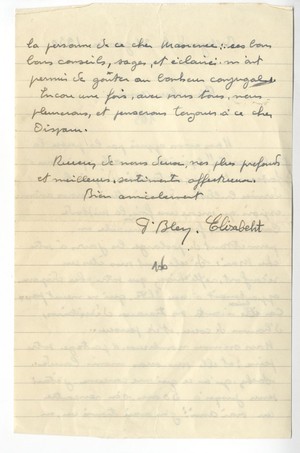 la personne de ce cher Maxence ; ces bons
bons conseils, sages, et éclairés m'ont
permi de goûter au bonheur conjugal.
Encou une fois, avec vous tous, nous
pleurons, et penserons toujours à ce cher
Disparu.
Recevez de nous deux, nos plus profonds
et meilleurs sentiments affectueux.
Bien amicalement
Bley. Elisabeht